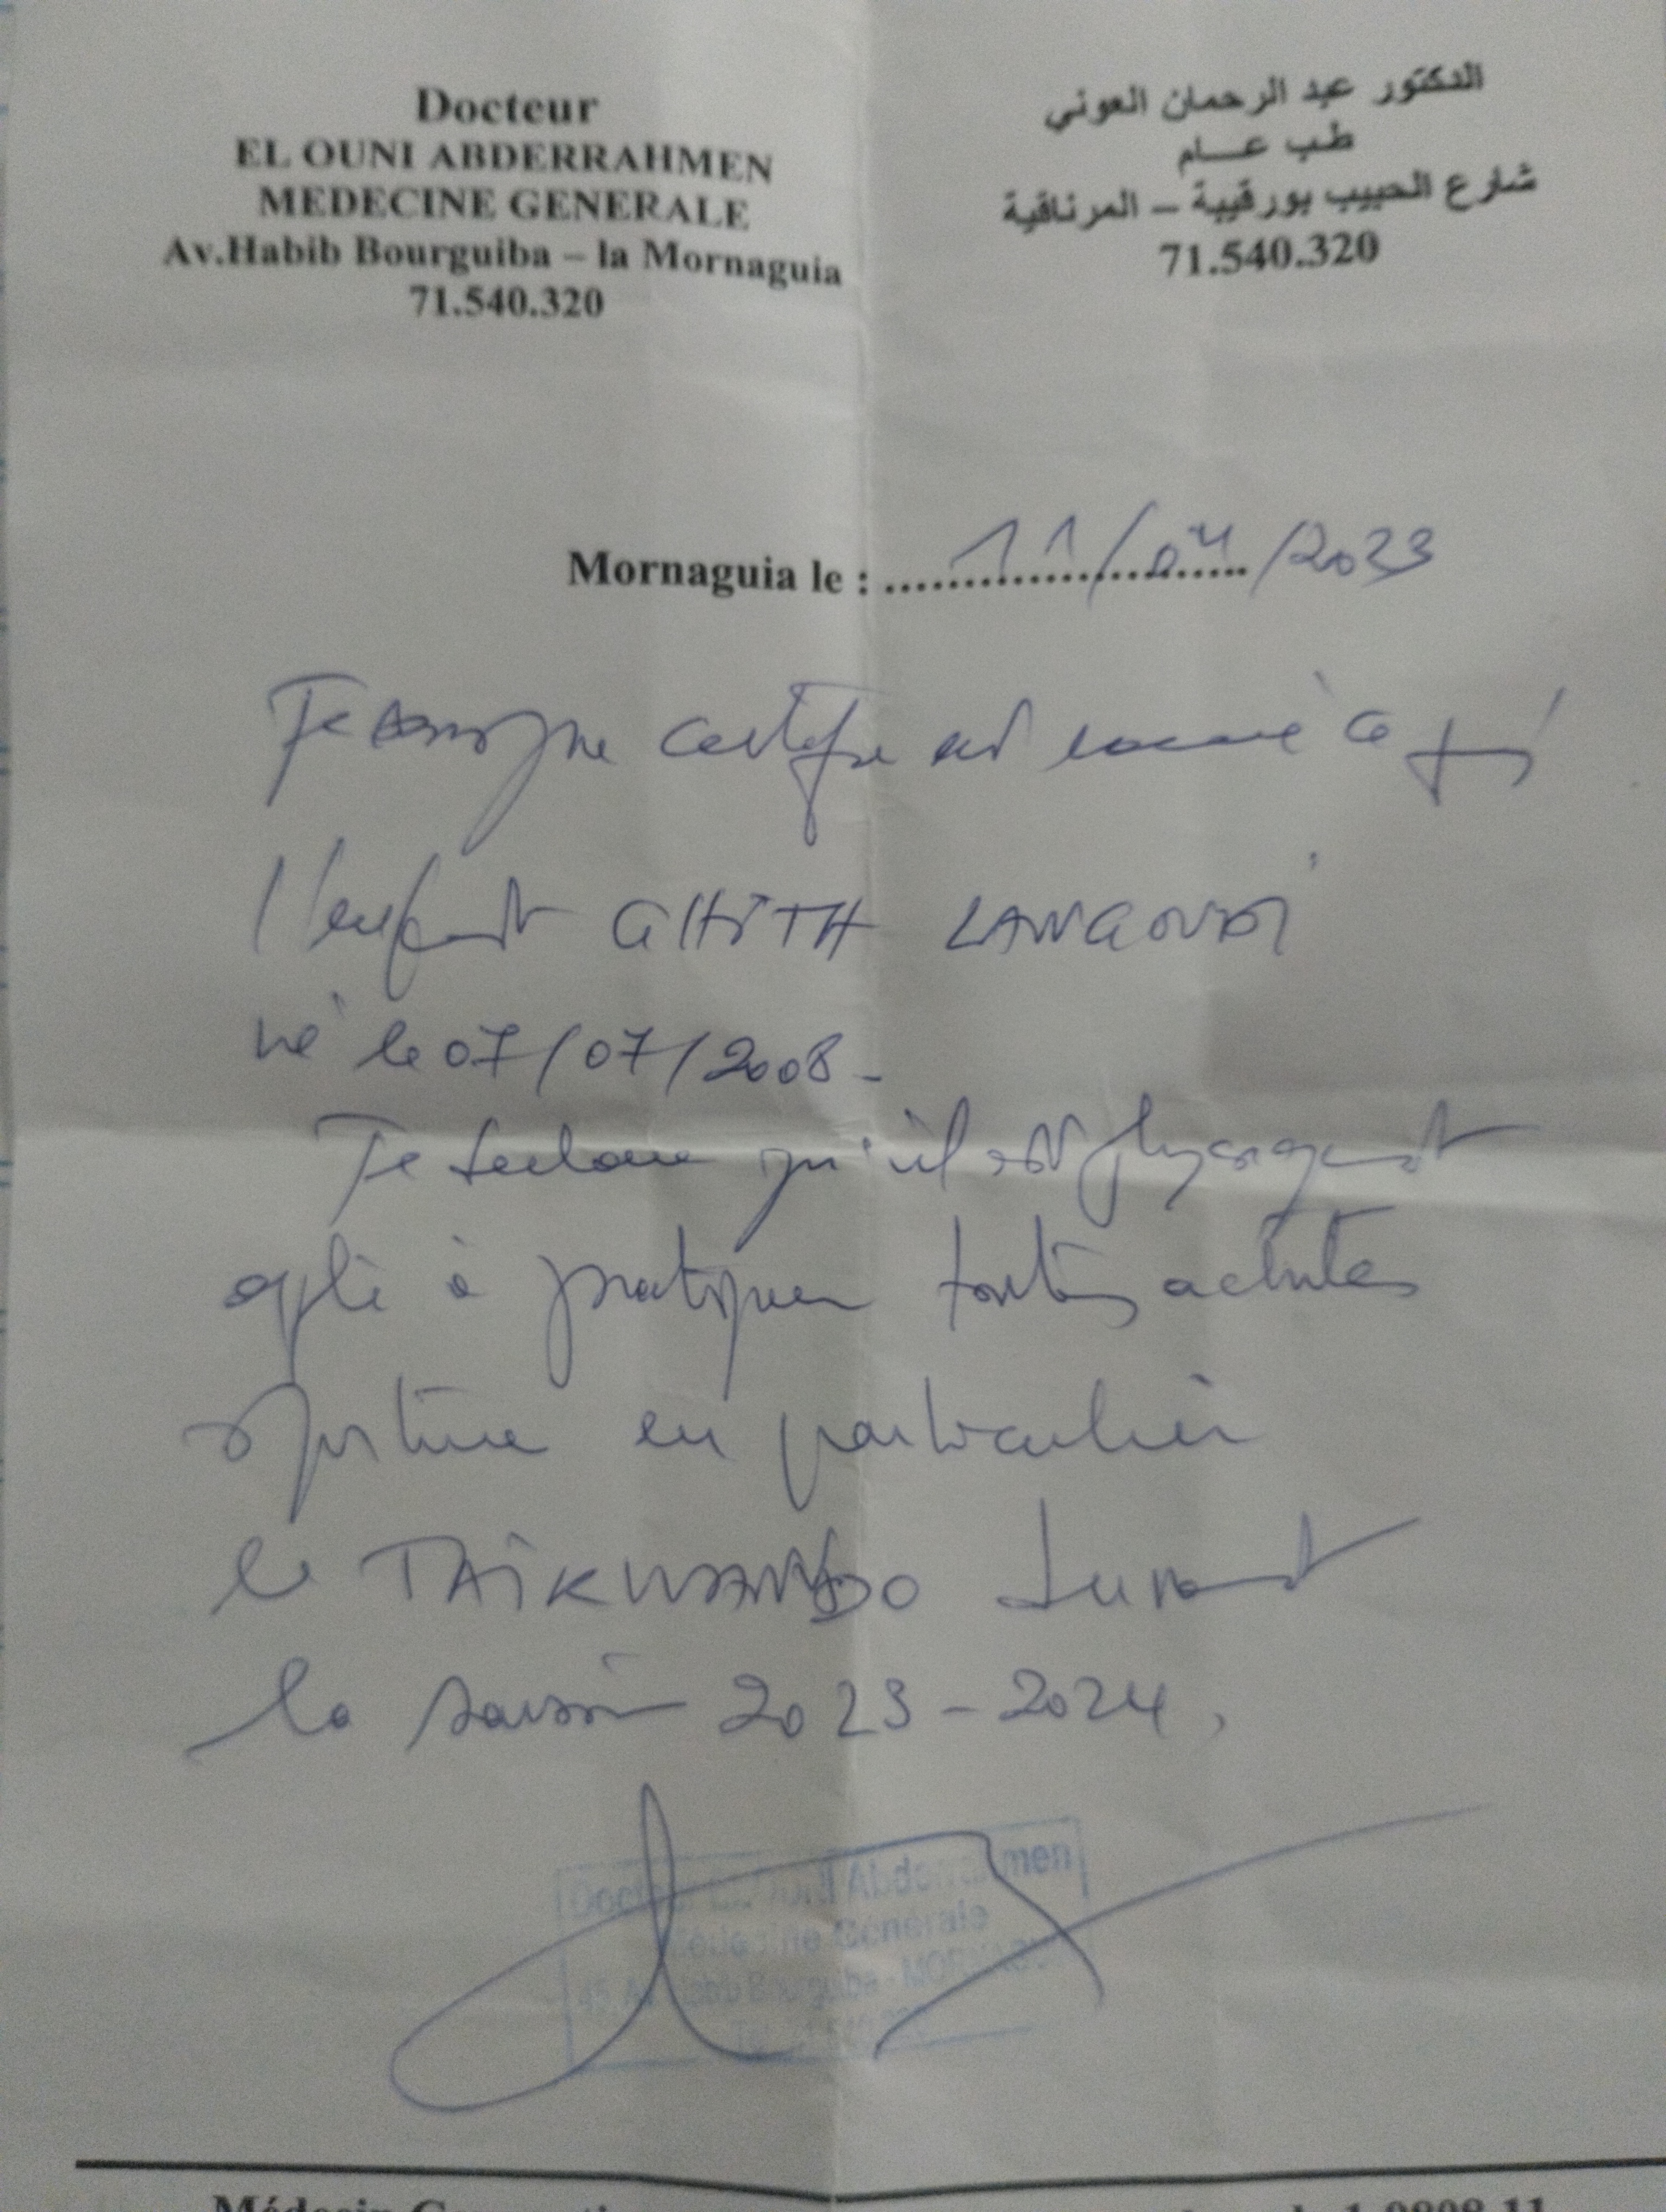 Docteur
EL OUNI ABDERRAHMEN
MEDECINE GENERALE
Av.Habib Bourguiba – la Mornaguia
71.540.320
الدكتور عبد الرحمان العوني
طب عام
شارع الحبيب بورقيبة – المرناقية
71.540.320
Mornaguia le : 11/04/2023
Je soussigné certifie avoir examiné ce jour
l'enfant GHITH
né le 07/07/2008 -
Je declare qu'il est physiquement
apte à pratiquer toutes activités
sportive en particulier
le TAIKWANDO durant
la saison 2023-2024.
Docteur Abderrahmen
Médecine Générale
45, Av. Habib Bourguiba - MORNAGUIA
Médecin